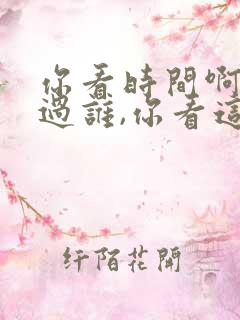 你看時間啊
過誰,你看這
纤陌花開